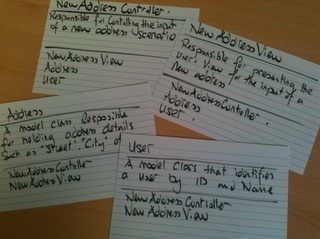 New Address Controller.
Responsible for Controlling the input
of a new address scenario
New Address View
Address
User
New Address View
Responsible for presenting the
User's View for the input of a
New address
New Address Controller.
Address
User.
Address
A model class Responsible
for holding address details
Such as "Street", "City" of
New Address Controller
New Address View
User
A model class that identifies
a user by ID and Name
New Address Controller
New Address View